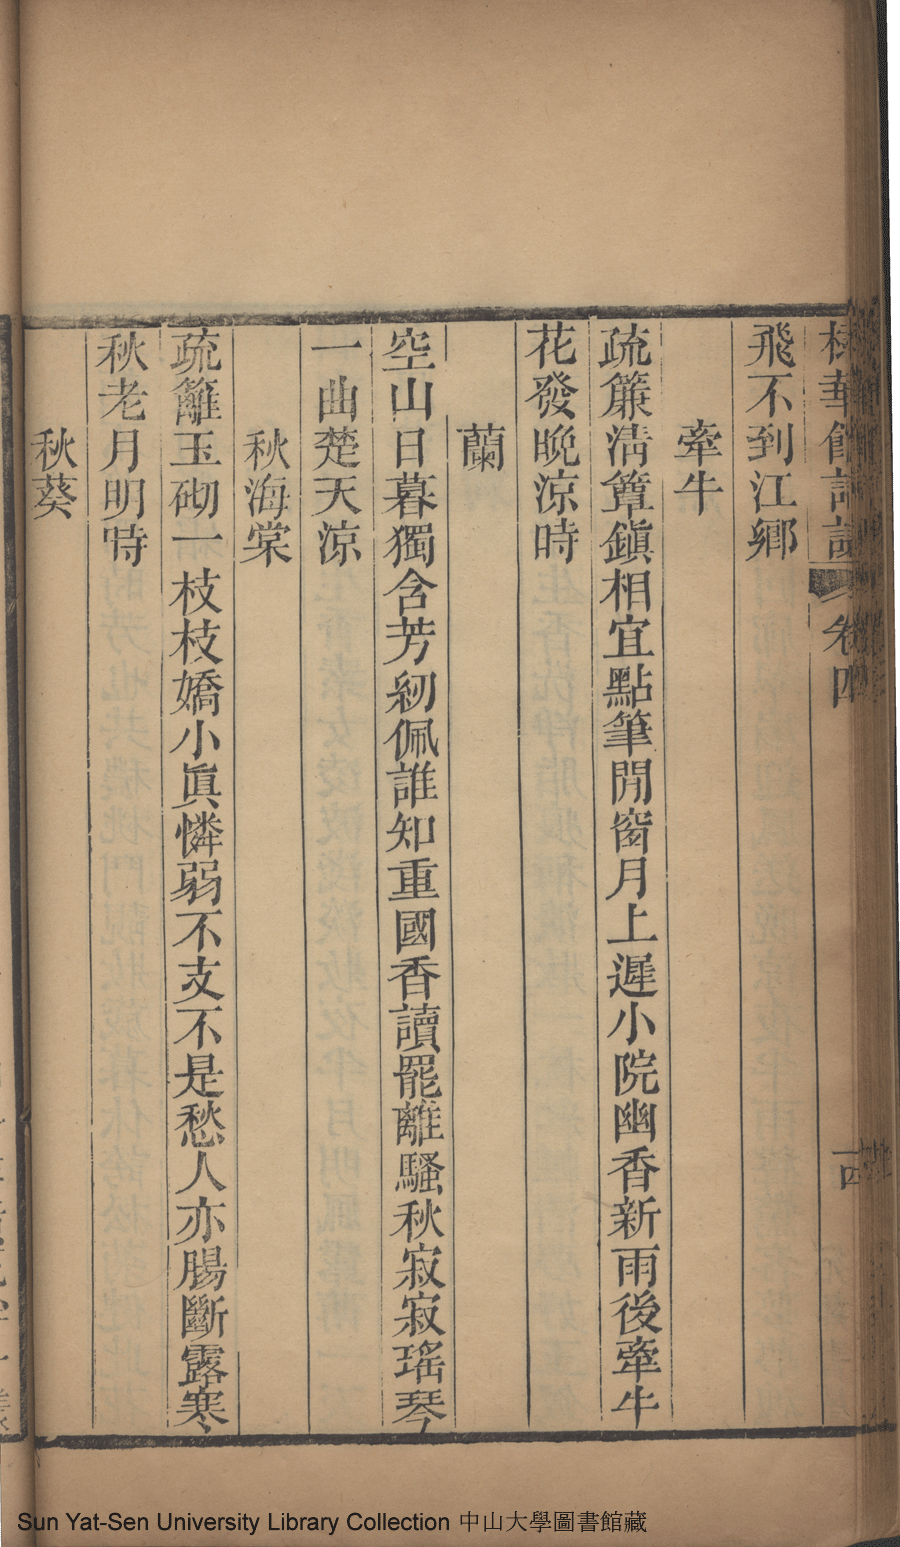 華館詩
卷四
飛不到江鄉
牽牛
疏簾淸簟鎭相宜點筆閒窗月上遲小院幽香新雨後牽牛
花發晚涼時
蘭
空山日暮獨含芳紉佩誰知重國香讀罷離騷秋寂寂瑤琴
一曲楚天涼
秋海棠
疏籬玉砌一枝枝嬌小眞憐弱不支不是愁人亦腸斷露寒
秋老月明時
秋葵
Sun Yat-Sen University Library Collection 中山大學圖書館藏